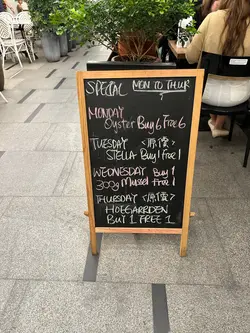 SPECIAL MON TO THUR
MONDAY
Oyster Buy 6 Free 6
TUESDAY
STELLA Buy 1 Free 1
WEDNESDAY Buy 1
300g Mussel Free 1
THURSDAY
HOEGARRDEN
BUY 1 FREE 1